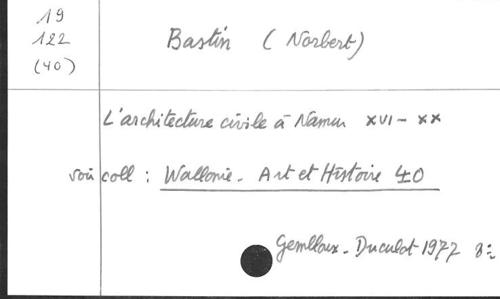 19
122
(40)
Bastin (Norbert)
L'architecture civile à Namur XVI - XX
voir coll : Wallonie - Art et Histoire 40
Gembloux - Duculot 1977 8°